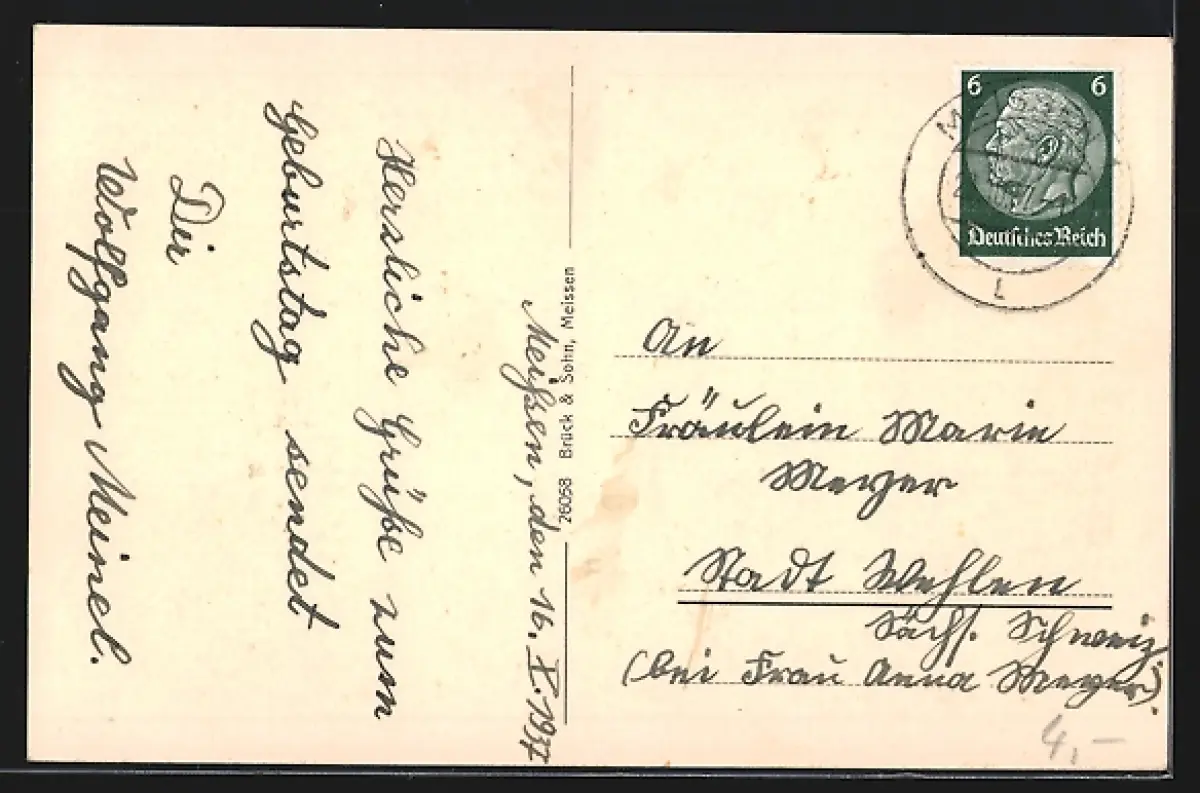 Meißen, den 16. X. 1937
Herzliche Grüße zum
Geburtstag sendet
Dir
Wolfgang Meinel.
26058 Brück & Sohn, Meissen
6 6
Deutsches Reich
L
An
Fräulein Marie
Meyer
Stadt Wehlen
Sächs. Schweiz
(bei Frau Anna Meyer).
4,-